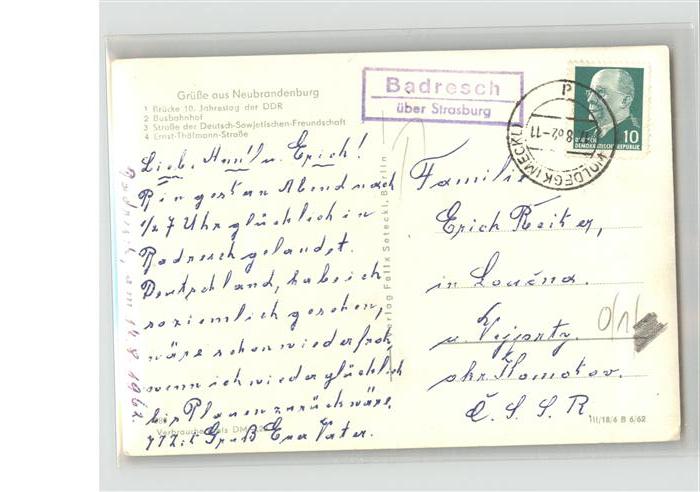 Grüße aus Neubrandenburg
1 Brücke 10. Jahrestag der DDR
2 Busbahnhof
3 Straße der Deutsch-Sowjetischen-Freundschaft
4 Ernst-Thälmann-Straße
Badresch
über Strasburg
P
WOLDEGK (MECKL)
8.62-11
10
DEUTSCHE
DEMOKRATISCHE REPUBLIK
Badresch, am 14.8.1962.
Lieb. Ann'l u. Erich!
Bin gestern Abend nach
1/2 7 Uhr glücklich in
Badresch gelandet.
Deutschland, habe ich
so ziemlich gesehen,
wäre schon wieder froh,
wenn ich wieder glücklich
bei Planen zurück wäre.
Gruß Euer Vater.
Verlag Felix Setecki, Berlin
Familie
Erich Reiter,
in Loučna.
u. Vejprty.
okr. Homotov.
Č. S. S. R
0/1
III/18/6 B 6/62
Verbraucherpreis DM